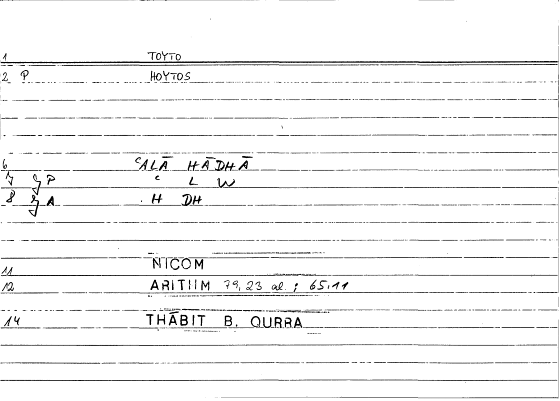 1 TOYTO
2 P HOYTOS
6 ʿALĀ HĀDHĀ
7 P ʿ L W
8 A . H DH
11 NICOM
12 ARITIIM 79,23 al. ; 65.11
14 THĀBIT B. QURRA